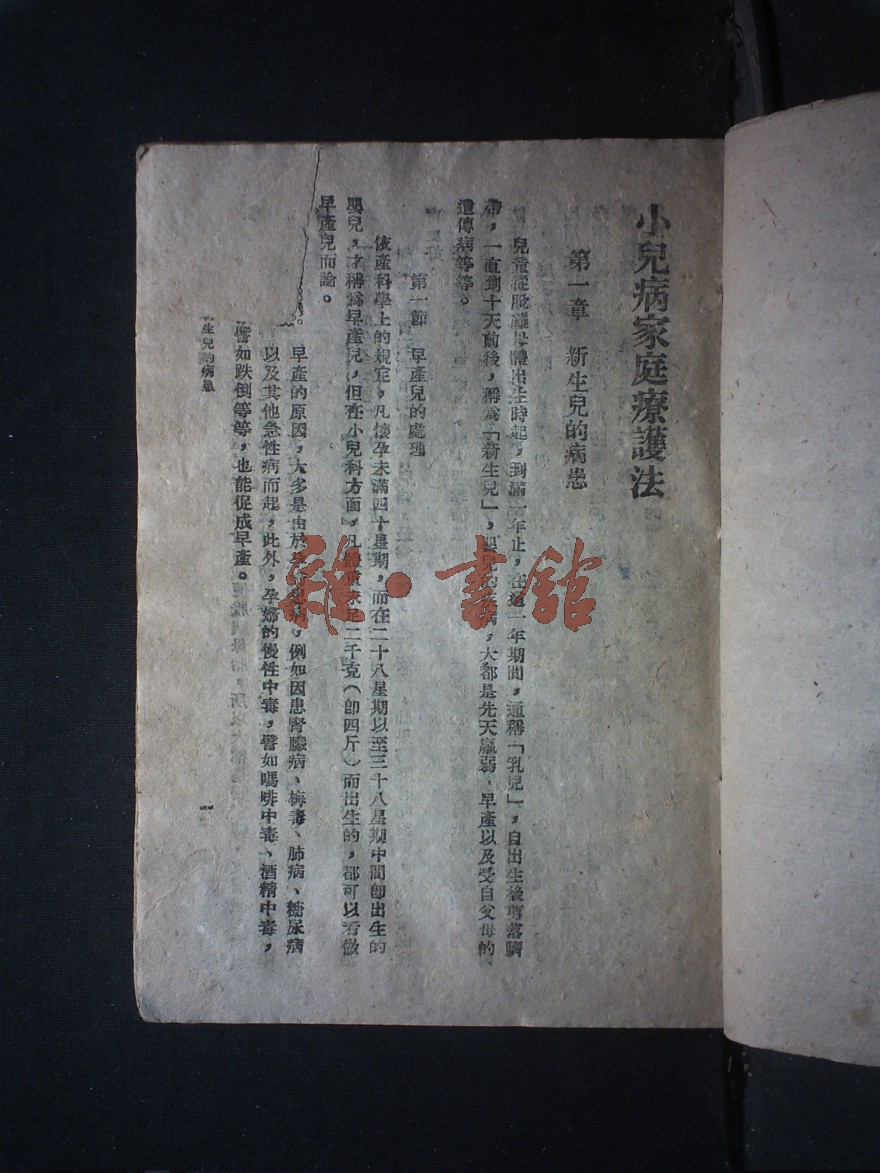 小兒病家庭療護法
第一章　新生兒的病患
兒童從脫離母體出生時起，到滿一年止，在這一年期間，通稱「乳兒」，自出生後剪落臍
帶，一直到十天前後，稱爲「新生兒」，嬰兒的疾病，大都是先天羸弱、早產以及受自父母的
遺傳病等等。
第一節　早產兒的處理
依產科學上的規定，凡懷孕未滿四十星期，而在二十八星期以至三十八星期中間卽出生的
嬰兒，才稱爲早產兒，但在小兒科方面，凡體重未足二千克（卽四斤）而出生的，都可以看做
早產兒而論。
早產的原因，大多是由於孕病，例如因患腎臟病、梅毒、肺病、糖尿病
以及其他急性病而起，此外，孕婦的慢性中毒，譬如嗎啡中毒、酒精中毒，
譬如跌倒等等，也能促成早產。
生兒的病患
一
雜·書館